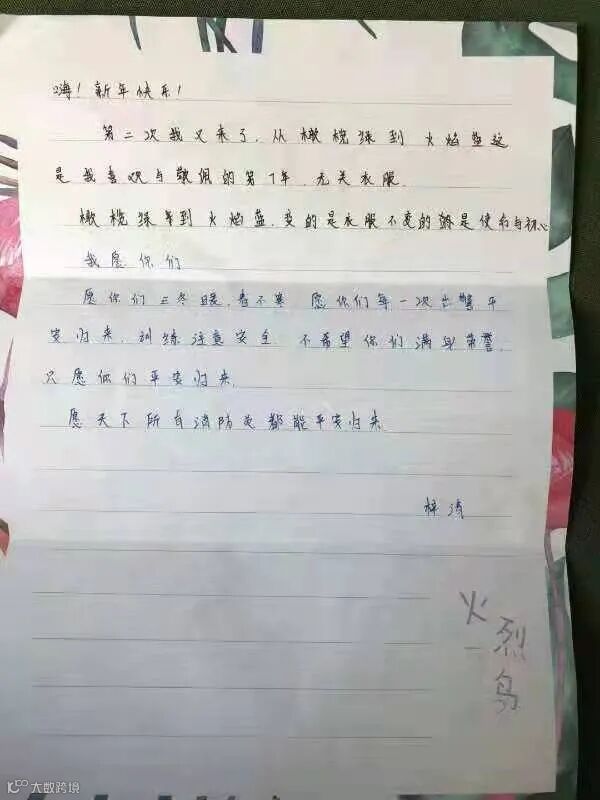 嗨！新年快乐！
第二次我又来了，从橄榄绿到 火焰蓝这
是我喜欢与敬佩的第7年，无关衣服。
橄榄绿到 火焰蓝，变的是衣服不变的是使命与初心
我愿你们
愿你们三冬暖，春不寒 愿你们每一次出警平
安归来，训练注意安全，不希望你们满身荣誉，
只愿你们平安归来
愿天下所有消防员都能平安归来
梓涛
火烈鸟
大数跨境